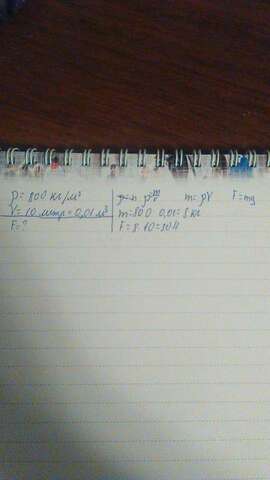 ρ=800 кг/м³
V=10 литр=0,01 м³
F=?
ρ=m/v m=ρV F=mg
m=800 0,01=8 кг
F=8 10=80Н